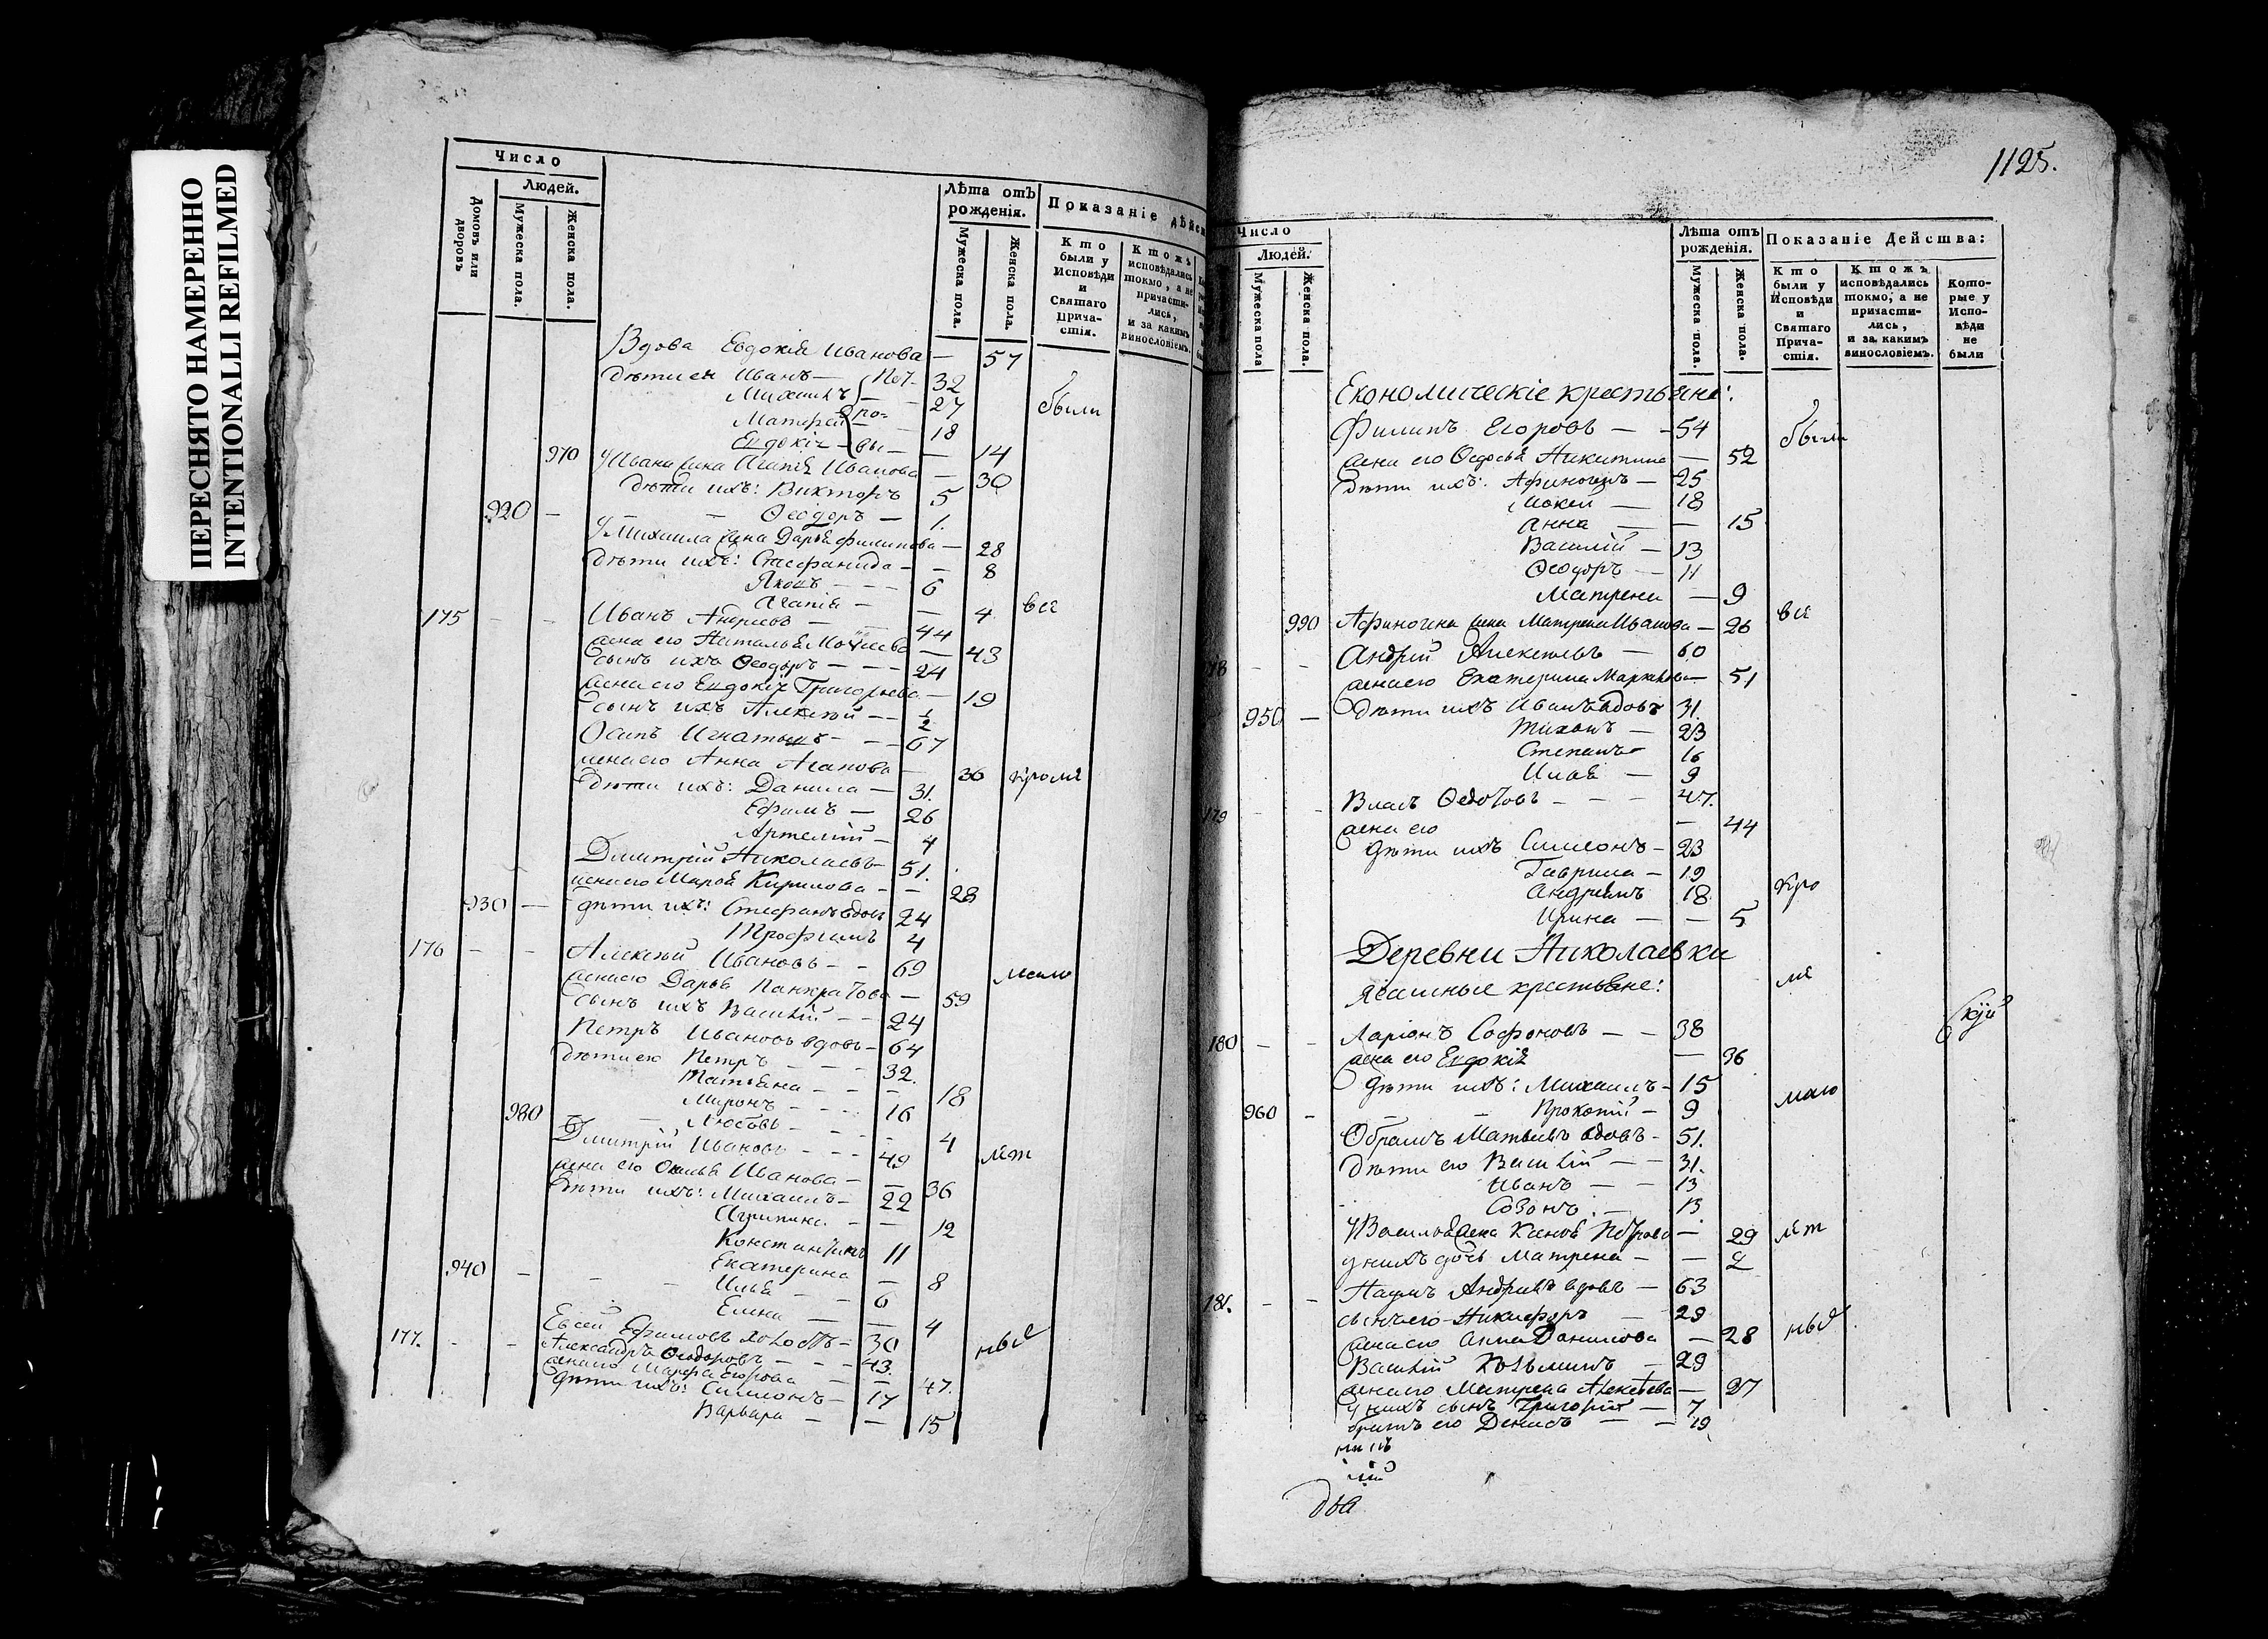 ПЕРЕСНЯТО НАМЕРЕННО
INTENTIONALLI REFILMED
Число
Людей.
Домовъ или дворовъ
Мужеска пола.
Женска пола.
Лѣта отъ рожденія.
Мужеска пола.
Женска пола.
Показаніе дѣйст
Кто были у Исповѣди и Святаго Прича-стія.
Ктожъ исповѣдались токмо, а не причасти-лись, и за какимъ винословіемъ.
Вдова Евдокія Иванова — 57
дѣти ея Иванъ — 32
Михаилъ — 27 были
Матфей — 18
Евдокія — 14
970 Ивана жена Агапія Иванова — 30
дѣти ихъ: Викторъ 5
920 — Ѳеодоръ — 1.
У Михаила жена Дарья Филипова — 28
дѣти ихъ: Стефанида — 8
Яковъ — 6
Агапія — 4 всѣ
175 Иванъ Андреевъ — 44
жена его Наталья — 43
сынъ ихъ Ѳеодоръ — 24
жена его Евдокія Григорьева — 19
сынъ ихъ Алексѣй — 1/2
Осипъ Игнатьевъ — 67
жена его Анна Агапова — 36 кромѣ
дѣти ихъ: Данила — 31.
Ефимъ — 26
Артемій — 4
Дмитрій Николаевъ 51.
жена его Марѳа Кирилова — 28
930 — дѣти ихъ: Стефанъ вдовъ 24
Трофимъ 4
176 Алексѣй Ивановъ — 69
жена его Дарья Панкратова — 59 мало
сынъ ихъ Василій — 24
Петръ Ивановъ вдовъ — 64
дѣти его Петръ — 32.
Татьяна — 18
Миронъ — 16
980 Любовь — 4
Дмитрій Ивановъ — 49 лѣт
жена его Иванова — 36
дѣти ихъ: Михаилъ — 22
Агрипина — 12
Константинъ 11
Екатерина — 8
940 — Илья — 6
Елена — 4
Евсей Ефимовъ холостъ — 30 ныхъ
177. Александръ Ѳеодоровъ — 43.
жена его Марфа Егорова — 47.
дѣти ихъ: Симионъ — 17
Варвара — 15
1125.
Число
Людей.
Мужеска пола
Женска пола.
Лѣта отъ рожденія.
Мужеска пола.
Женска пола.
Показаніе Действа:
Кто были у Исповѣди и Святаго Прича-стія.
Ктожъ исповѣдались токмо, а не причасти-лись, и за какимъ винословіемъ.
Кото-рые у Испо-вѣди не были
Економическіе крестьяне:
Филипъ Егоровъ — 54 были
жена его Ѳедосья Никитина — 52
дѣти ихъ: Афиногенъ — 25
Мокей — 18
Анна — 15
Василій — 13
Ѳеодоръ — 11
Матрена — 9
990 Афиногена жена Матрена Иванова — 26 всѣ
178 Андрей Алексѣевъ — 60
жена его Екатерина — 51
950 — дѣти ихъ Иванъ вдовъ 31.
Тихонъ — 23
Степанъ 16
Илья — 9
179 Власъ Ѳедотовъ — 47.
жена его — 44
дѣти ихъ Симеонъ — 23
Гаврила — 19
Андреянъ 18 кро
Ирина — 5
Деревни Николаевки
ясашные крестьяне: мѣ
180 Ларіонъ Софоновъ — 38
жена его Евдокія — 36
дѣти ихъ: Михаилъ — 15
960 — Прокопій — 9 мало
Обрамъ Матвѣевъ вдовъ — 51.
дѣти его Василій — 31.
Иванъ — 13
Созонъ — 13
У Василья жена Петрова — 29 лѣт
у нихъ дочь Матрена — 2
181. Наумъ Андреевъ вдовъ — 63
сынъ его Никифоръ 29
жена его Анна Данилова — 28 ныхъ
Василій Козьминъ — 29
жена его Матрена Алексѣева — 27
у нихъ сынъ Григорій — 7
братъ его Денисъ — 19
два